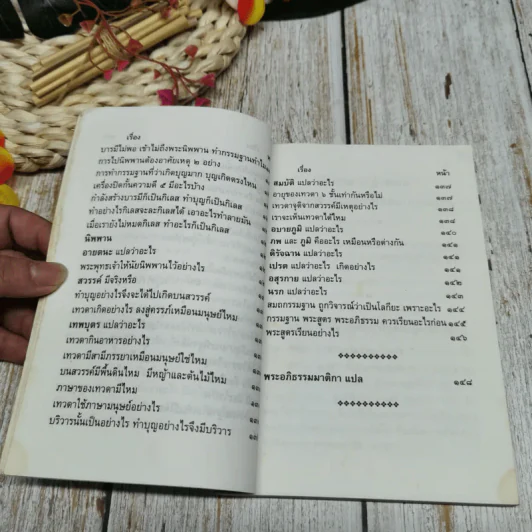 เรื่อง
บารมีไม่พอ เข้าไม่ถึงพระนิพพาน ทำกรรมฐานทำไม
การไปนิพพานต้องอาศัยเหตุ ๒ อย่าง
การทำกรรมฐานที่ว่าเกิดบุญมาก บุญเกิดตรงไหน
เครื่องปิดกั้นความดี ๕ มีอะไรบ้าง
กำลังสร้างบารมีก็เป็นกิเลสได้ ทำบุญก็เป็นกิเลส
ทำอย่างไรกิเลสจะละกิเลสได้ เอาอะไรทำลายมัน
เมื่อเรายังไม่หมดกิเลส ทำอะไรก็เป็นกิเลส
นิพพาน
อายตนะ แปลว่าอะไร
พระพุทธเจ้าให้นัยนิพพานไว้อย่างไร
สวรรค์ มีจริงหรือ
ทำบุญอย่างไรจึงจะได้ไปเกิดบนสวรรค์
เทวดาเกิดอย่างไร ลงสู่ครรภ์เหมือนมนุษย์ไหม
เทพบุตร แปลว่าอะไร
เทวดากินอาหารอย่างไร
เทวดามีสามีภรรยาเหมือนมนุษย์ใช่ไหม
บนสวรรค์มีพื้นดินไหม มีหญ้าและต้นไม้ไหม
ภาษาของเทวดามีไหม
เทวดาใช้ภาษามนุษย์อย่างไร
บริวารนั้นเป็นอย่างไร ทำบุญอย่างไรจึงมีบริวาร
เรื่อง หน้า
สมบัติ แปลว่าอะไร ๑๓๗
อายุของเทวดา ๖ ชั้นเท่ากันหรือไม่ ๑๓๗
เทวดาจุติจากสวรรค์มีเหตุอย่างไร ๑๓๘
เราจะเห็นเทวดาได้ไหม ๑๓๘
อบายภูมิ แปลว่าอะไร ๑๔๐
ภพ และ ภูมิ คืออะไร เหมือนหรือต่างกัน
ดิรัจฉาน แปลว่าอะไร ๑๔๑
เปรต แปลว่าอะไร เกิดอย่างไร ๑๔๑
อสุรกาย แปลว่าอะไร ๑๔๒
นรก แปลว่าอะไร ๑๔๓
สมถกรรมฐาน ถูกวิจารณ์ว่าเป็นโลกียะ เพราะอะไร ๑๔๔
กรรมฐาน พระสูตร พระอภิธรรม ควรเรียนอะไรก่อน ๑๔๕
พระสูตรเรียนอย่างไร ๑๔๖
พระอภิธรรมมาติกา แปล ๑๔๘